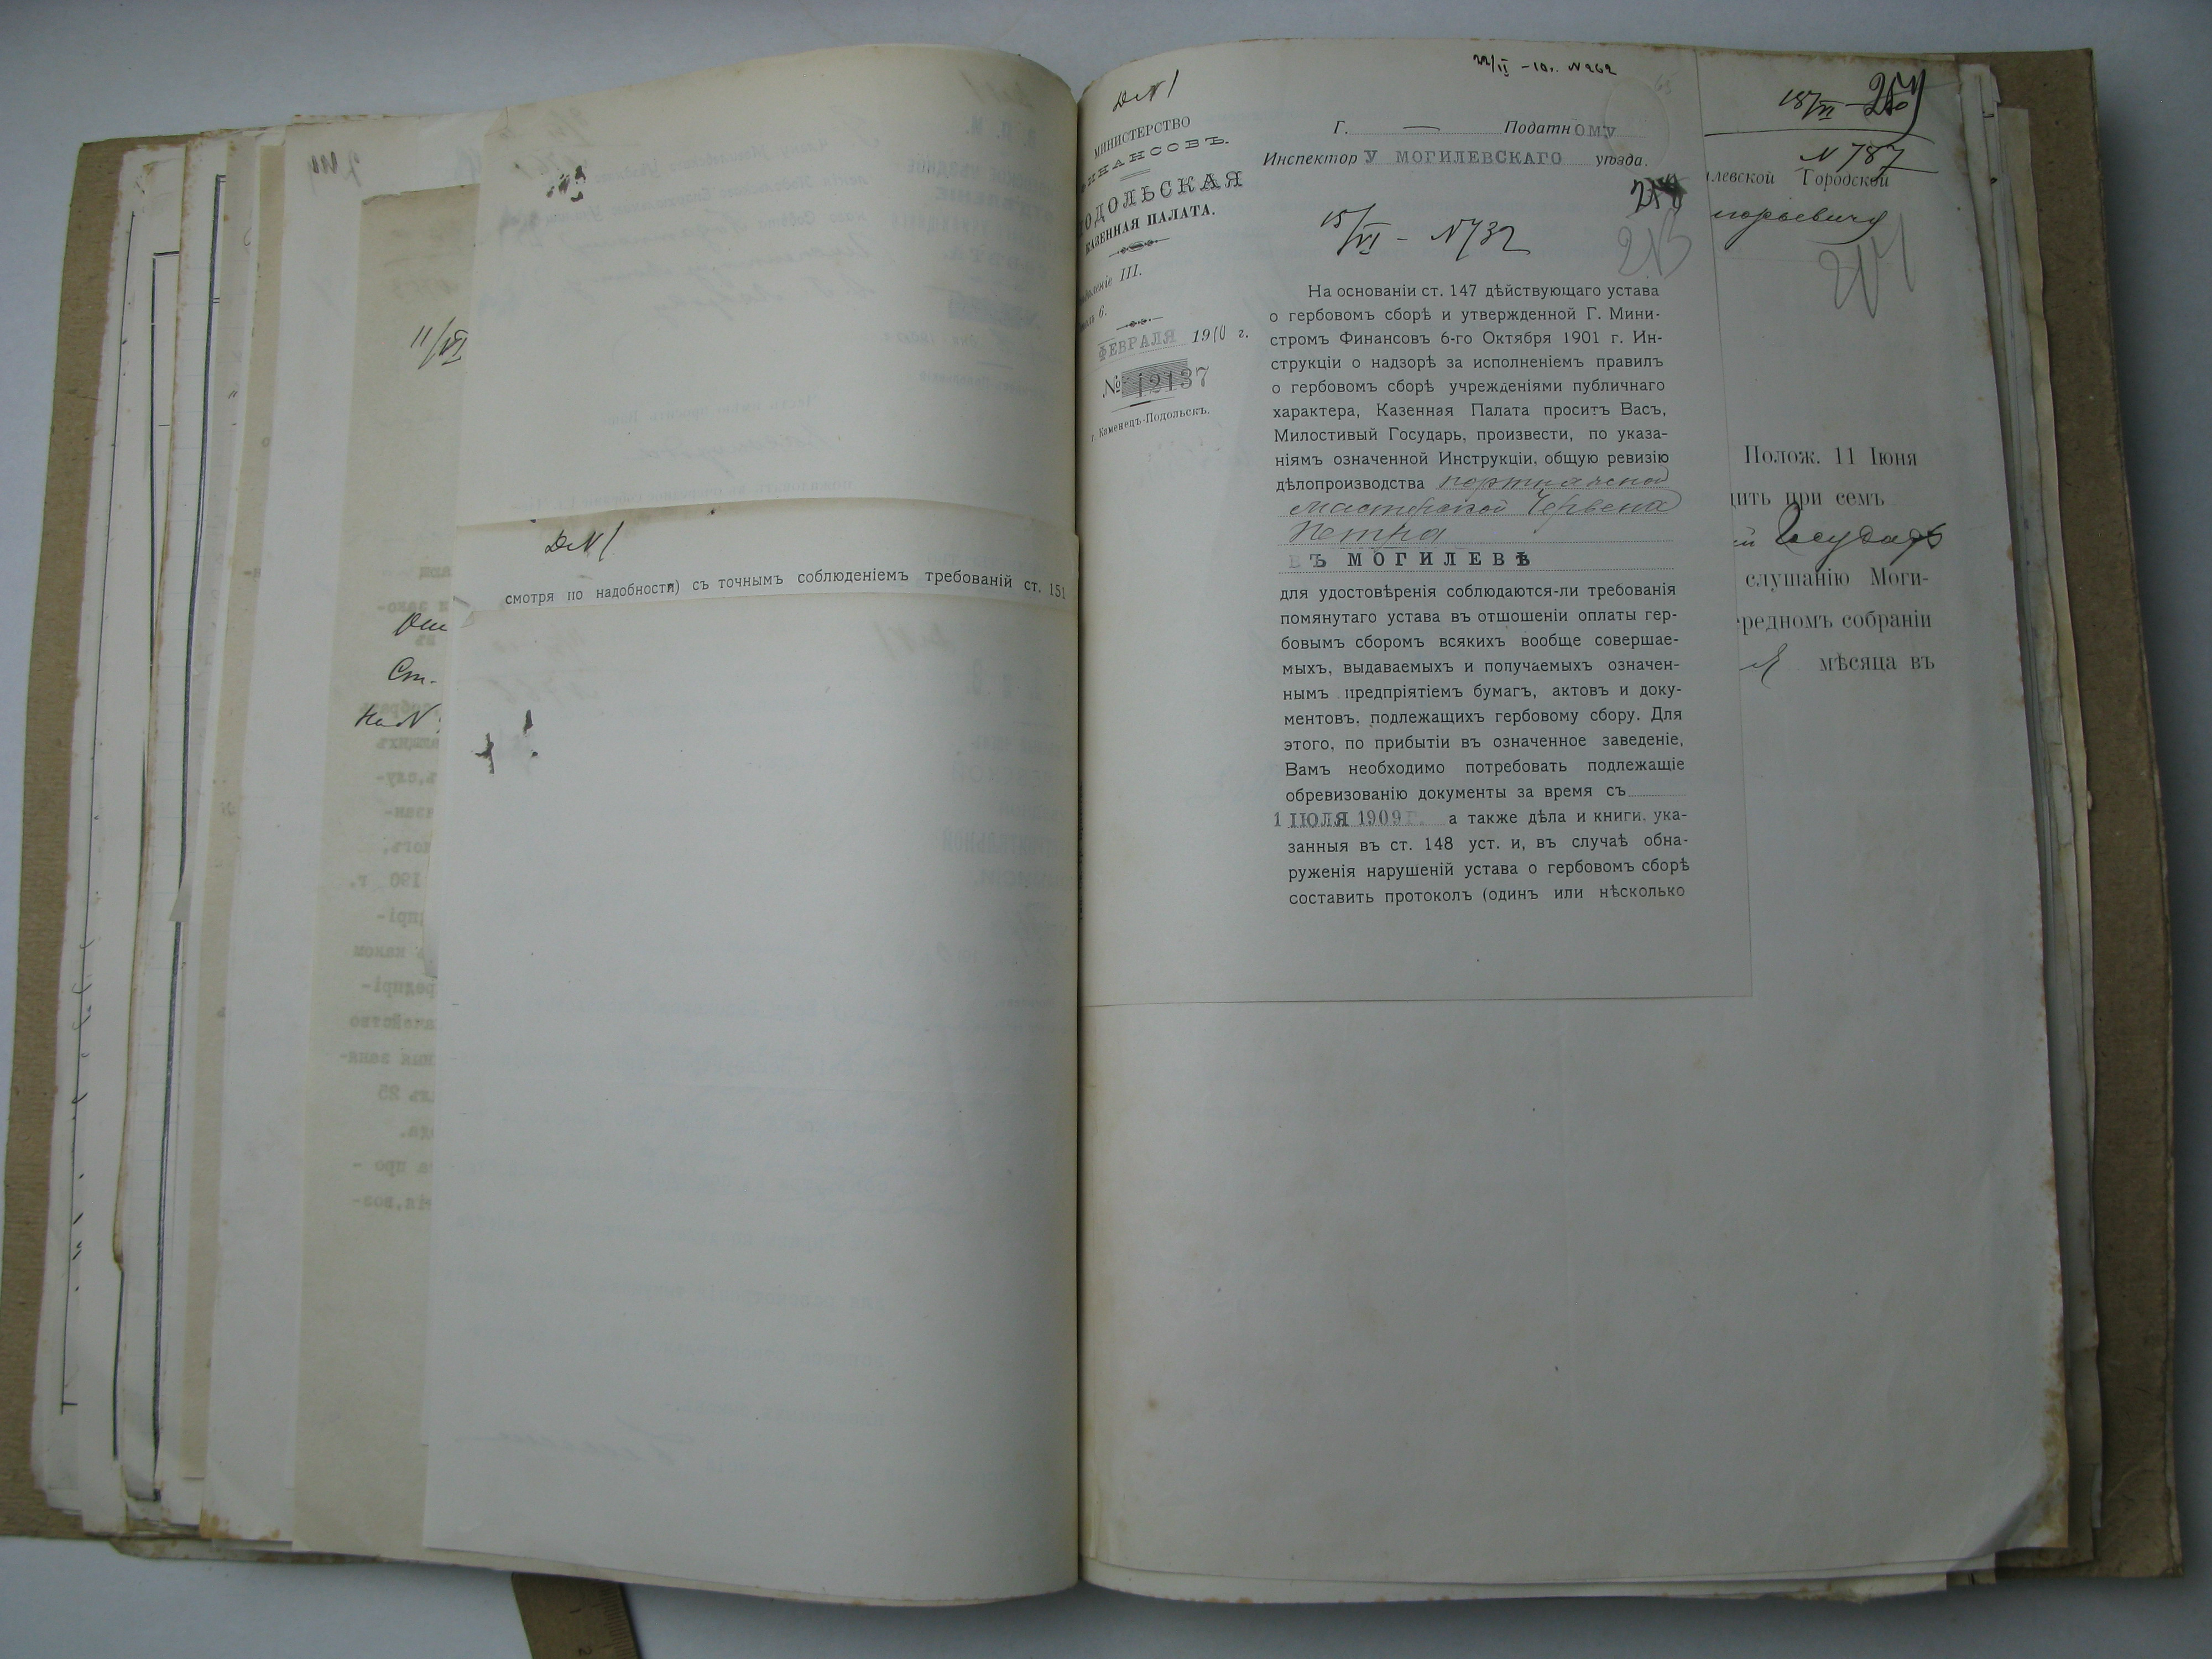 11/VI
Ст.
На №
Д№1
смотря по надобности) съ точнымъ соблюденіемъ требованій ст. 151
Д№1
МИНИСТЕРСТВО
ФИНАНСОВЪ.
ПОДОЛЬСКАЯ
КАЗЕННАЯ ПАЛАТА.
III.
6.
ФЕВРАЛЯ 1910 г.
№ 12137
г. Каменецъ-Подольскъ.
22/II -10г. №262
Г. — Податному
Инспектору МОГИЛЕВСКАГО уѣзда.
15/VI - №732
213
На основаніи ст. 147 дѣйствующаго устава
о гербовомъ сборѣ и утвержденной Г. Мини-
стромъ Финансовъ 6-го Октября 1901 г. Ин-
струкціи о надзорѣ за исполненіемъ правилъ
о гербовомъ сборѣ учрежденіями публичнаго
характера, Казенная Палата проситъ Васъ,
Милостивый Государь, произвести, по указа-
ніямъ означенной Инструкціи, общую ревизію
дѣлопроизводства портняжной
мастерской Червена
Петра
ВЪ МОГИЛЕВѢ
для удостовѣренія соблюдаются-ли требованія
помянутаго устава въ отшошеніи оплаты гер-
бовымъ сборомъ всякихъ вообще совершае-
мыхъ, выдаваемыхъ и получаемыхъ означен-
нымъ предпріятіемъ бумагъ, актовъ и доку-
ментовъ, подлежащихъ гербовому сбору. Для
этого, по прибытіи въ означенное заведеніе,
Вамъ необходимо потребовать подлежащіе
обревизованію документы за время съ
1 ІЮЛЯ 1909 г. а также дѣла и книги, ука-
занныя въ ст. 148 уст. и, въ случаѣ обна-
руженія нарушеній устава о гербовомъ сборѣ
составить протоколъ (одинъ или нѣсколько
18/VI
№ 787
илевской Городской
игорьевичу
Полож. 11 Іюня
дить при семъ
Государь
слушанію Моги-
редномъ собраніи
мѣсяца въ